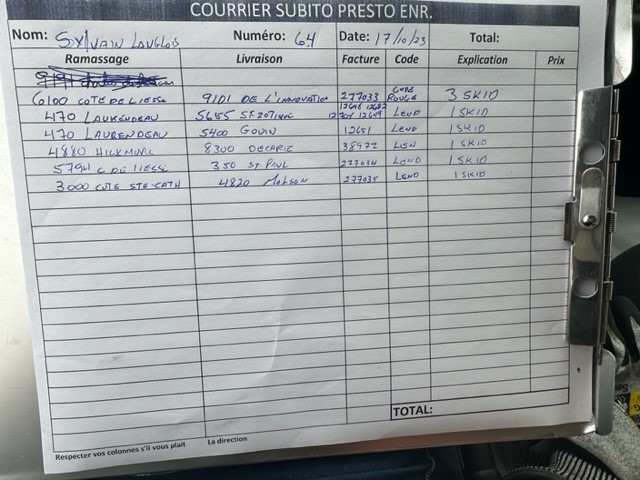 COURRIER SUBITO PRESTO ENR.
Nom: SYLVAIN LANGLOIS Numéro: 64 Date: 17/10/23 Total:
Ramassage Livraison Facture Code Explication Prix
9191
6100 COTE DE LIESSE 9101 DE L'INNOVATION 277033 CODE ROUGE 3 SKID
470 LAURENDEAU 5655 ST-ZOTIQUE LEND 1 SKID
470 LAURENDEAU 5400 GOUIN 12651 LEND 1 SKID
4880 HICKMORE 8300 DECARIE 38972 LEN 1 SKID
5794 C DE LIESSE 350 ST-PAUL 277034 LEND 1 SKID
3000 COTE STE-CATH 4820 MOLSON 277035 LEND 1 SKID
TOTAL:
Respecter vos colonnes s'il vous plaît La direction